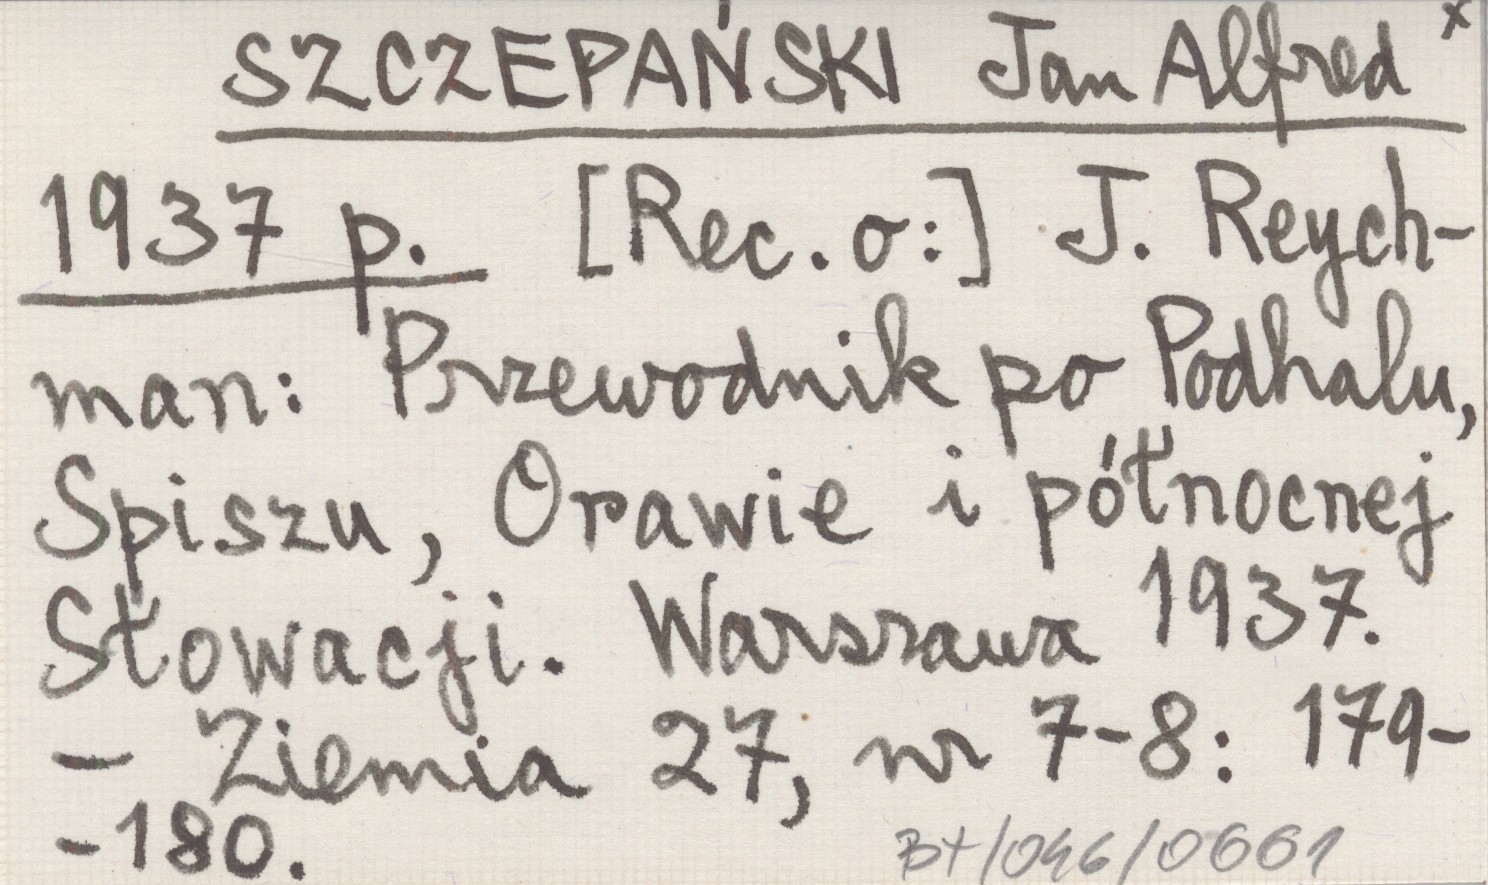 SZCZEPAŃSKI Jan Alfred x
1937 p. [Rec. o:] J. Reych-
man: Przewodnik po Podhalu,
Spiszu, Orawie i północnej
Słowacji. Warszawa 1937.
– Ziemia 27, nr 7-8: 179-
-180.
BT/046/0661